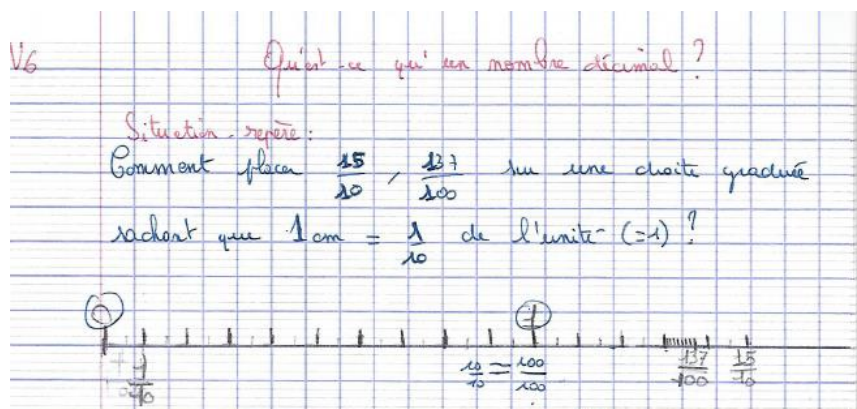 V6 Qu'est-ce qu'un nombre décimal ?
Situation-repère :
Comment placer 15/10, 137/100 sur une droite graduée
sachant que 1 cm = 1/10 de l'unité (=1) ?
0 1
1/10 10/10 = 100/100 137/100 15/10